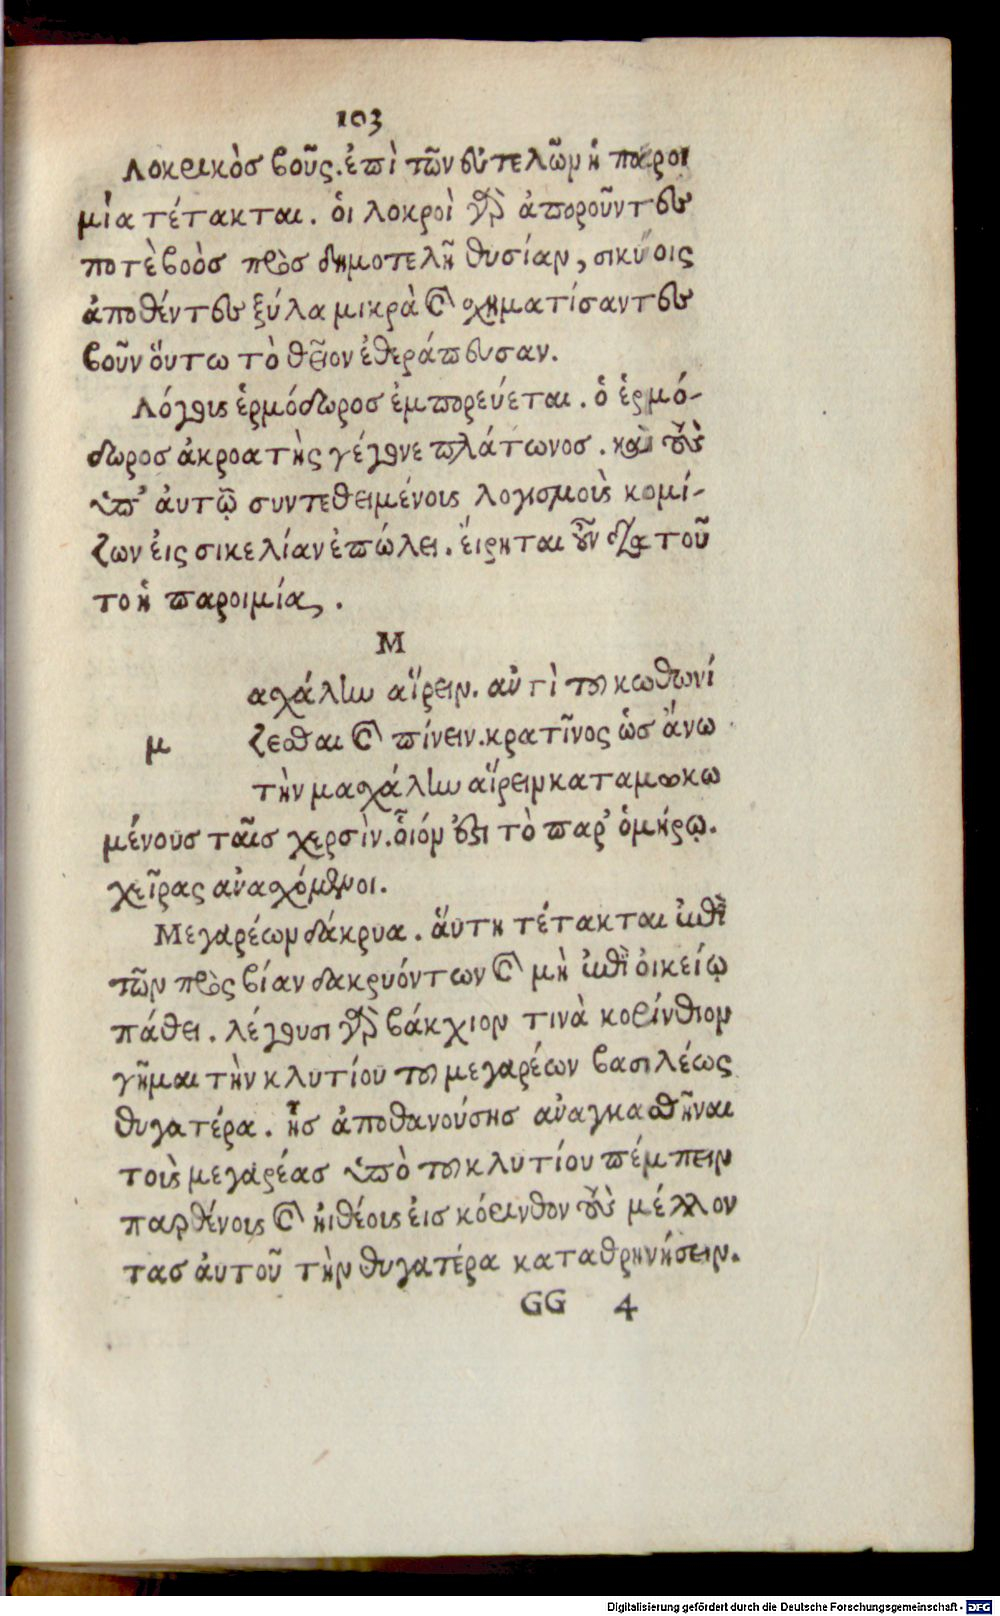 103
Λοκρικὸσ βοῦς. ἐπὶ τῶν εὐτελῶν ἡ παροι
μία τέτακται. ὁι λοκροὶ γὰρ ἀποροῦντες
ποτὲ βοὸσ πρὸσ δημοτελῆ θυσίαν, σικύοις
ἀποθέντες ξύλα μικρὰ καὶ σχηματίσαντες
βοῦν ὅυτω τὸ θεῖον ἐθεράπευσαν.
Λόγοις ἑρμόδωροσ ἐμπορεύεται. ὁ ἑρμό-
δωροσ ἀκροατὴς γέγονε πλάτωνοσ. καὶ τοὺς
ὑπ' ἀυτῷ συντεθειμένοις λογισμοὺς κομί-
ζων ἐις σικελίαν ἐπώλει. ἔιρηται οὖν διὰ τοῦ
το ἡ παροιμία.
Μ
αχάλην αἴρειν. ἀντὶ τοῦ κωθωνί
μ ζεσθαι καὶ πίνειν. κρατῖνος ὡσ ἄνω
τὴν μαχάλην αἴρειν καταμωκω
μένουσ ταῖσ χερσὶν. οἷόν ἐστι τὸ παρ' ὁμήρῳ.
χεῖρας ἀνασχόμενοι.
Μεγαρέων δάκρυα. ἅυτη τέτακται ἐπὶ
τῶν πρὸς βίαν δακρυόντων καὶ μὴ ἐπὶ ὀικείῳ
πάθει. λέγουσι γὰρ βάκχιον τινὰ κορίνθιον
γῆμαι τὴν κλυτίου τοῦ μεγαρέων βασιλέως
θυγατέρα. ἧσ ἀποθανούσησ ἀναγκασθῆναι
τοὺς μεγαρέασ ὑπὸ τοῦ κλυτίου πέμπειν
παρθένους καὶ ἠιθέους ἐισ κόρινθον τοὺς μέλλον
τασ ἀυτοῦ τὴν θυγατέρα καταθρηνήσειν.
GG 4
Digitalisierung gefördert durch die Deutsche Forschungsgemeinschaft - DFG